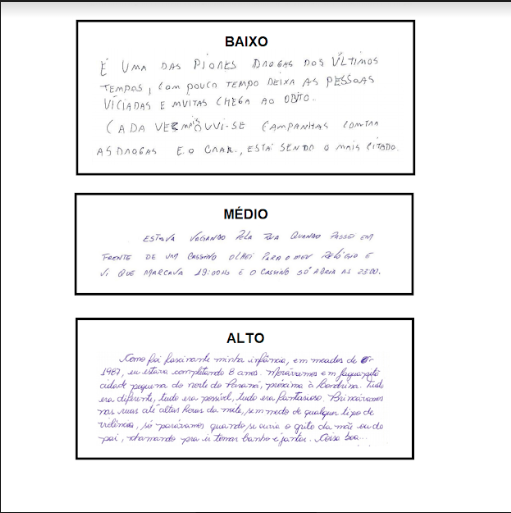 BAIXO
É UMA DAS PIORES DROGAS DOS ÚLTIMOS
TEMPOS, COM POUCO TEMPO DEIXA AS PESSOAS
VICIADAS E MUITAS CHEGA AO OBITO.
CADA VEZ MAIS OUVI-SE CAMPANHAS CONTRA
AS DROGAS E O CRAK, ESTÁ SENDO O MAIS CITADO.
MÉDIO
ESTAVA VAGANDO PELA RUA QUANDO PASSO EM
FRENTE DE UM CASSINO OLHEI PARA O MEU RELÓGIO E
VI QUE MARCAVA E O CASSINO SÓ ABRIA AS
ALTO
Como foi fascinante minha infância, em meados de
1987, eu estava completando 8 anos. Morávamos em
cidade pequena do norte do Paraná, próxima à Londrina. Tudo
era diferente, tudo era possível, tudo era fantasioso. Brincávamos
nas ruas até altas horas da noite, sem medo de qualquer tipo de
violência, só parávamos quando se ouvia o grito da mãe ou do
pai, chamando pra ir tomar banho e jantar.